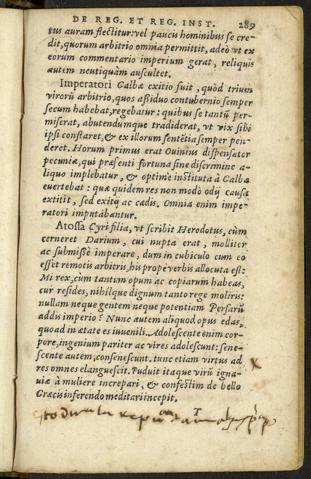 DE REG. ET REG. INST. 289
tus auram flectitur: vel paucis hominibus se cre-
dit, quorum arbitrio omnia permittit, adeò vt ex
eorum commentario imperium gerat, reliquis
autem neutiquàm auscultet.
Imperatori Galbæ exitio fuit, quòd trium
virorũ arbitrio, quos assiduo contubernio semper
secum habebat, regebatur: quibus se tantũ per-
miserat, abutendumque tradiderat, vt vix sibi
ipsi constaret, & ex illorum sentẽtia semper pen-
deret. Horum primus erat Ouinius dispensator
pecuniæ, qui præsenti fortuna sine discrimine a-
liquo implebatur, & optimè instituta à Galba
euertebat: quæ quidem res non modò odij causa
extitit, sed exitij ac cadis. Omnia enim impe-
ratori imputabantur.
Atossa Cyri filia, vt scribit Herodotus, cùm
cerneret Darium, cui nupta erat, molliter
ac submissè imperare, dum in cubiculo cum eo
esset remotis arbitris, his propè verbis allocuta est:
Mi rex, cum tantum opum ac copiarum habeas,
cur resides, nihilque dignum tanto rege moliris:
nullam neque gentem neque potentiam Persarũ
addis imperio? Nunc autem aliquod opus edas,
quoad in ætate es iuuenili. Adolescente enim cor-
pore, ingenium pariter ac vires adolescunt: sene-
scente autem, consenescunt: tunc etiam virtus ad
res omnes elanguescit. Puduit itaque virũ ignaui-
æ à muliere increpari, & confestim de bello
Græcis inferendo meditari incepit.
T